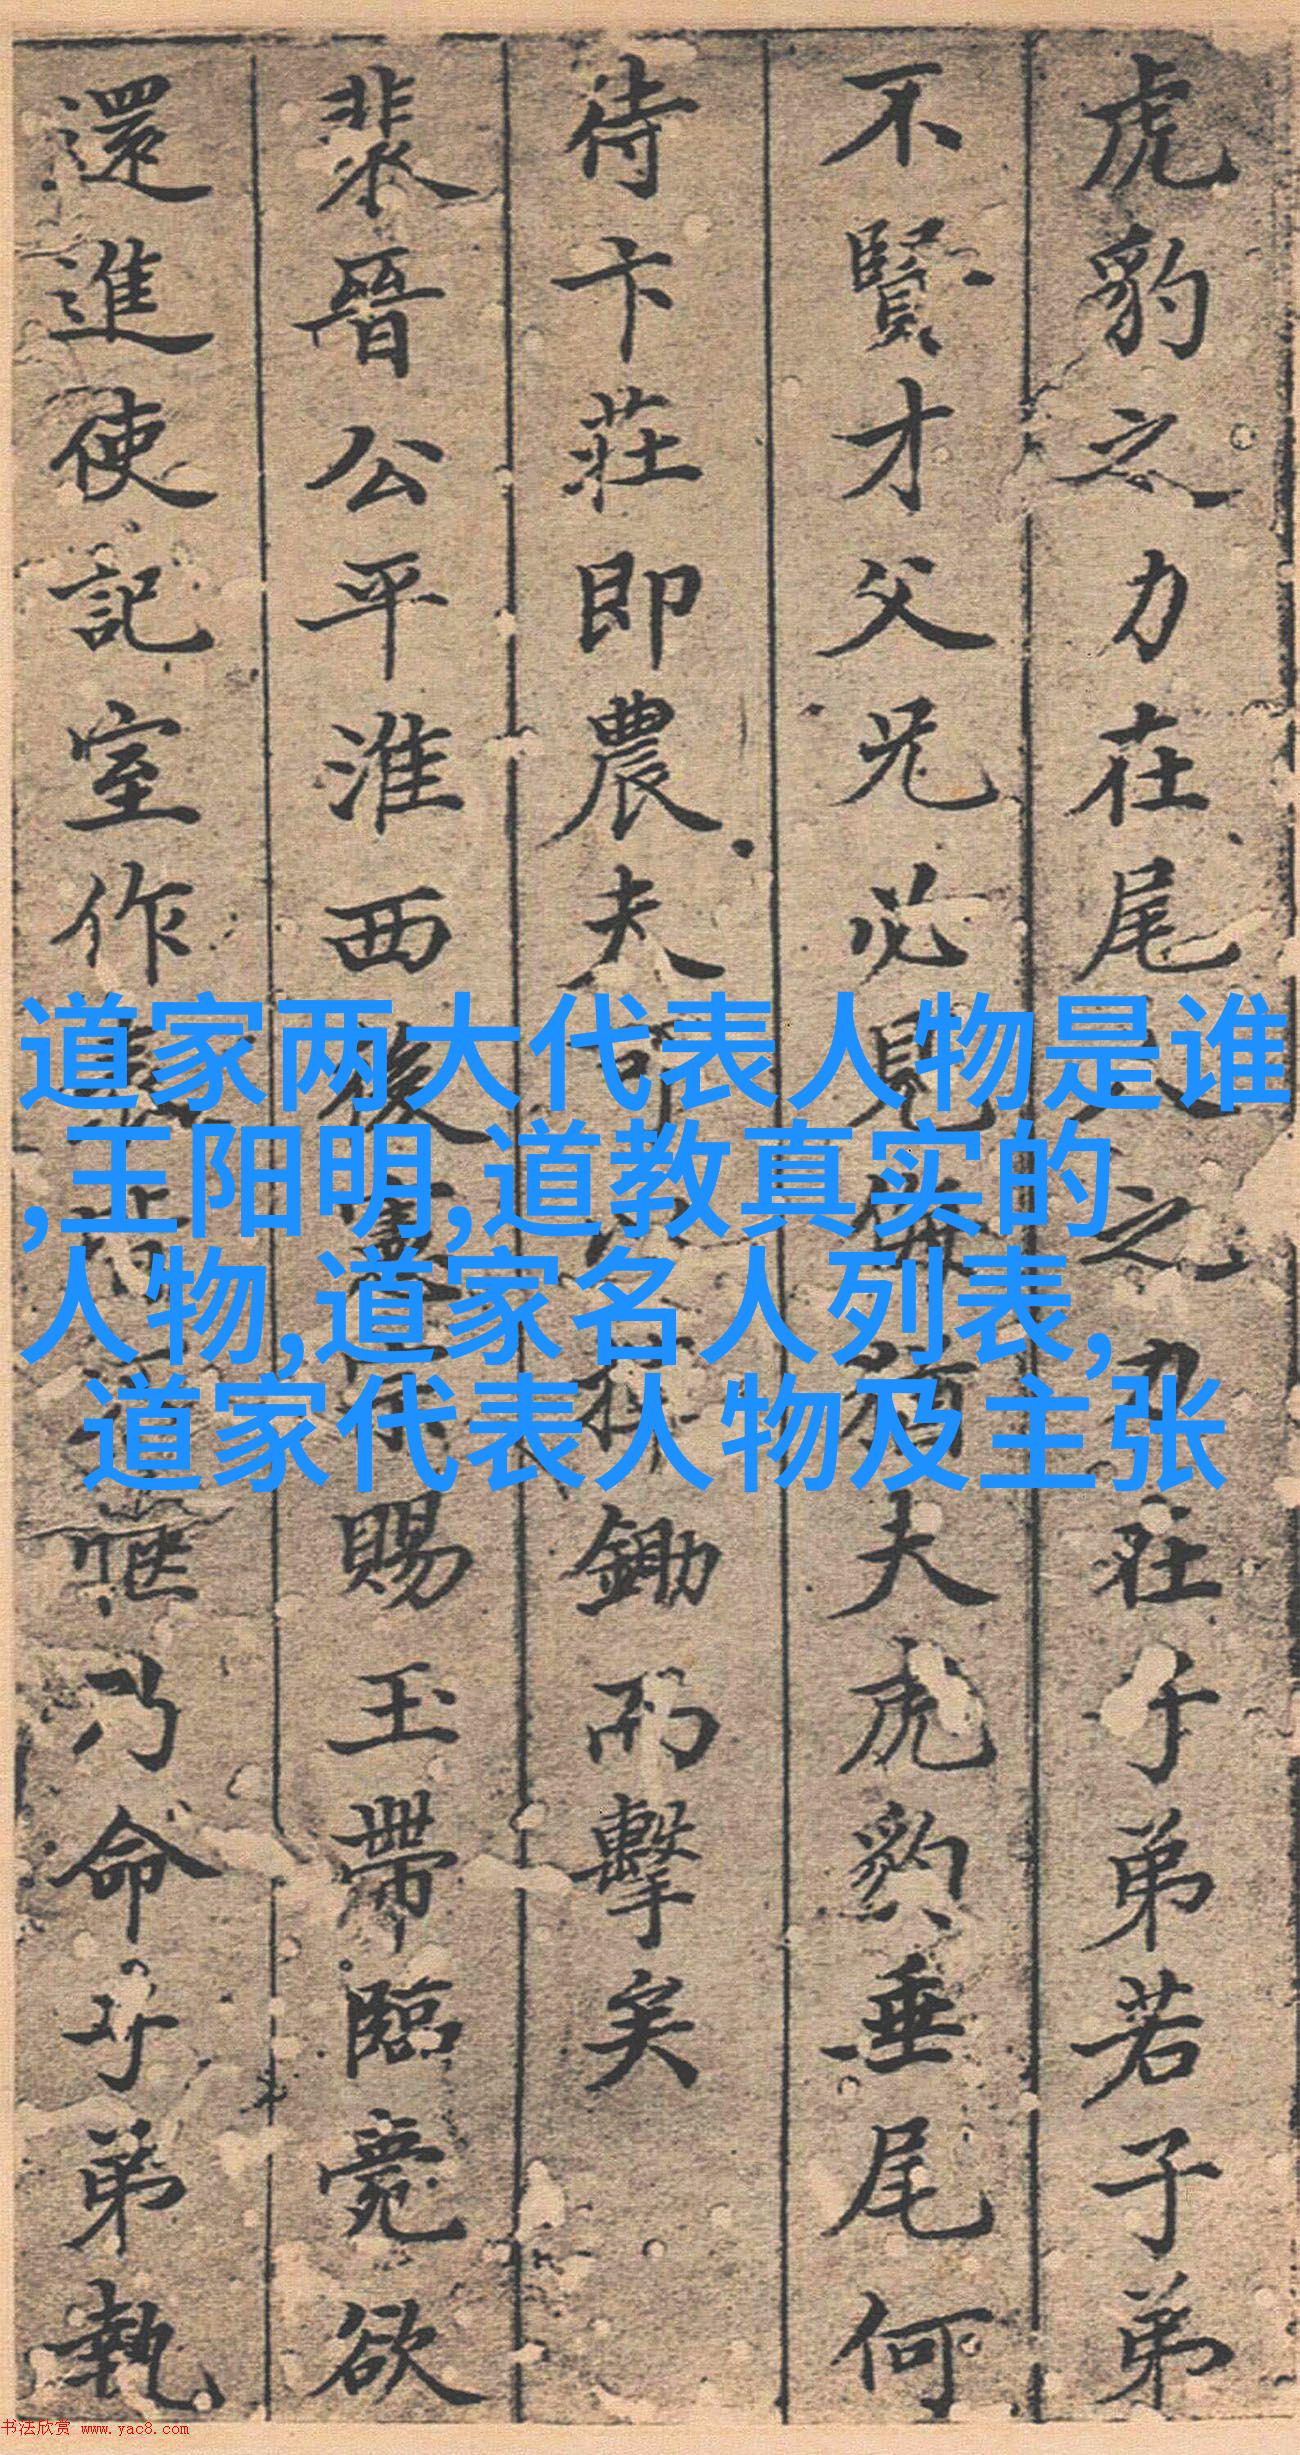 虎豹之力在尾人之力在子弟若子弟
不賢才父兄必見夫虎豹垂尾何
待卞莊即農夫可鋤而擊矣
裴晉公平淮西後憲宗賜玉帶臨薨欲
還進使記室作表皆不愜乃命子弟執
道家两大代表人物是谁
,王阳明,道教真实的
人物,道家名人列表,
道家代表人物及主张
书法欣赏 www.yac8.com